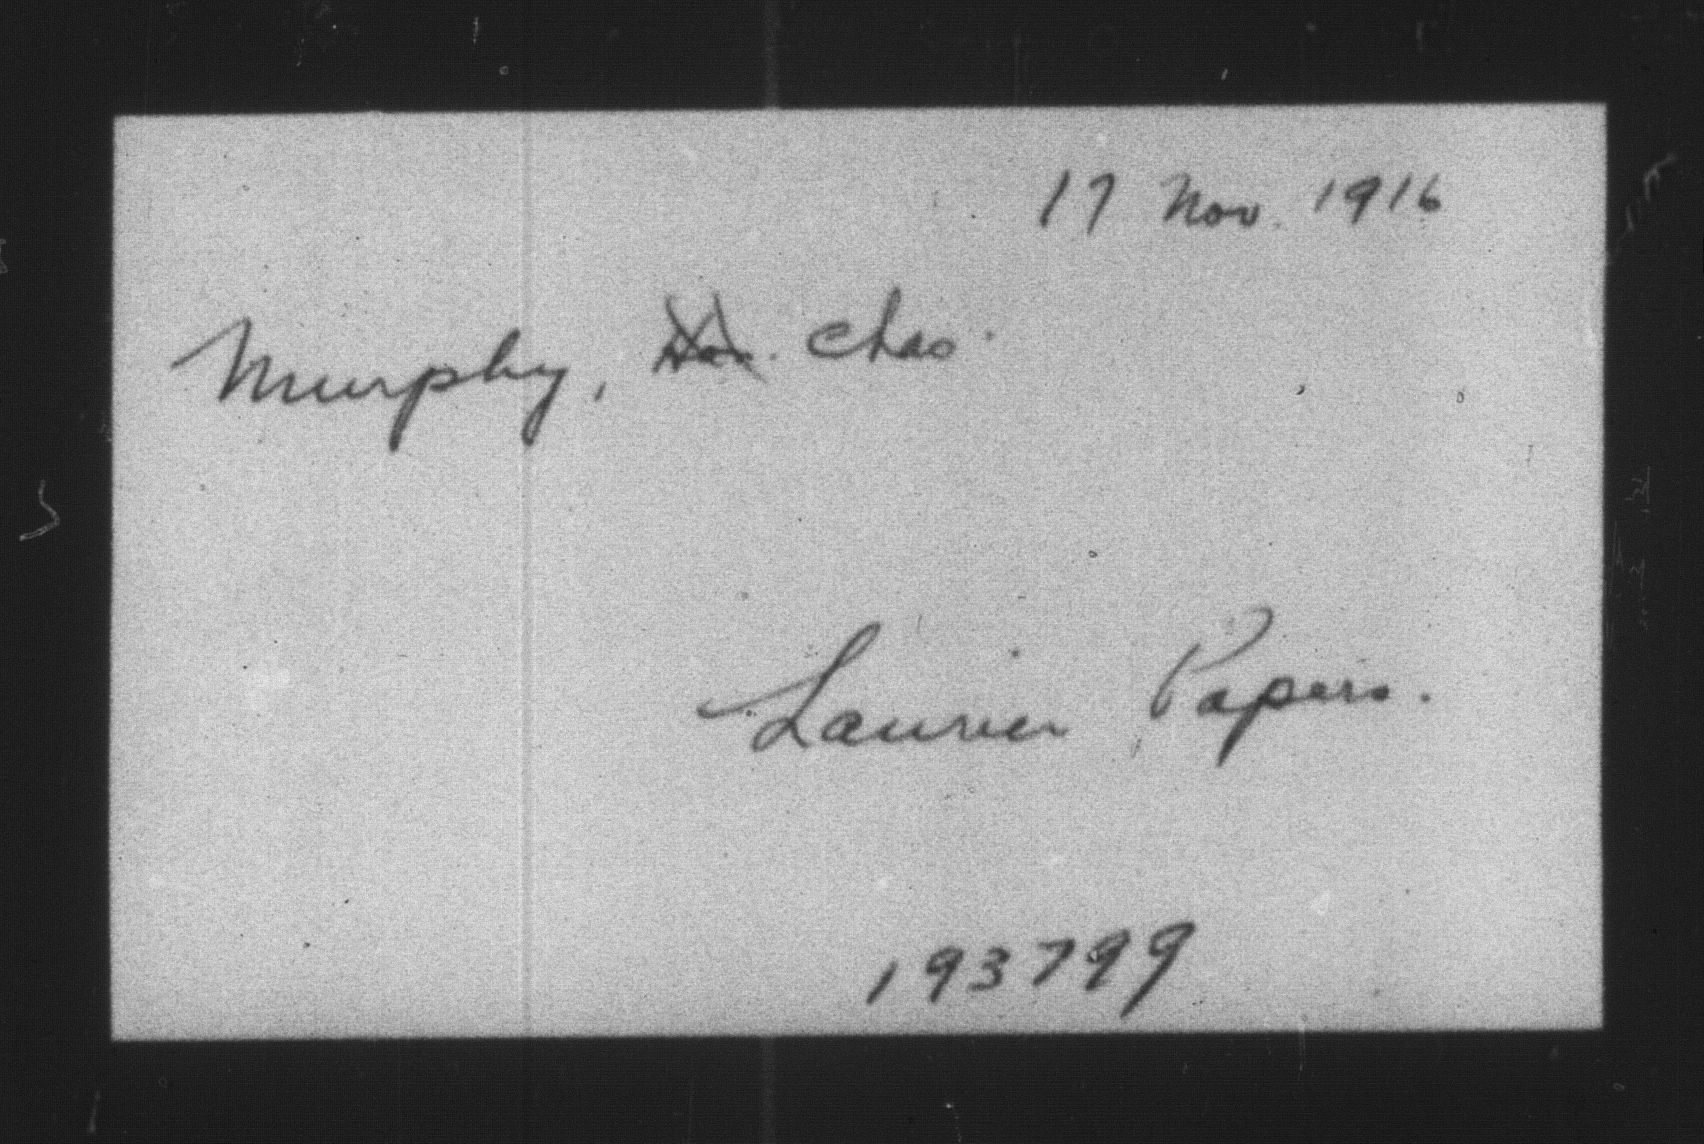 17 Nov. 1916
Murphy, Hon. Chas.
Laurier Papers.
193799